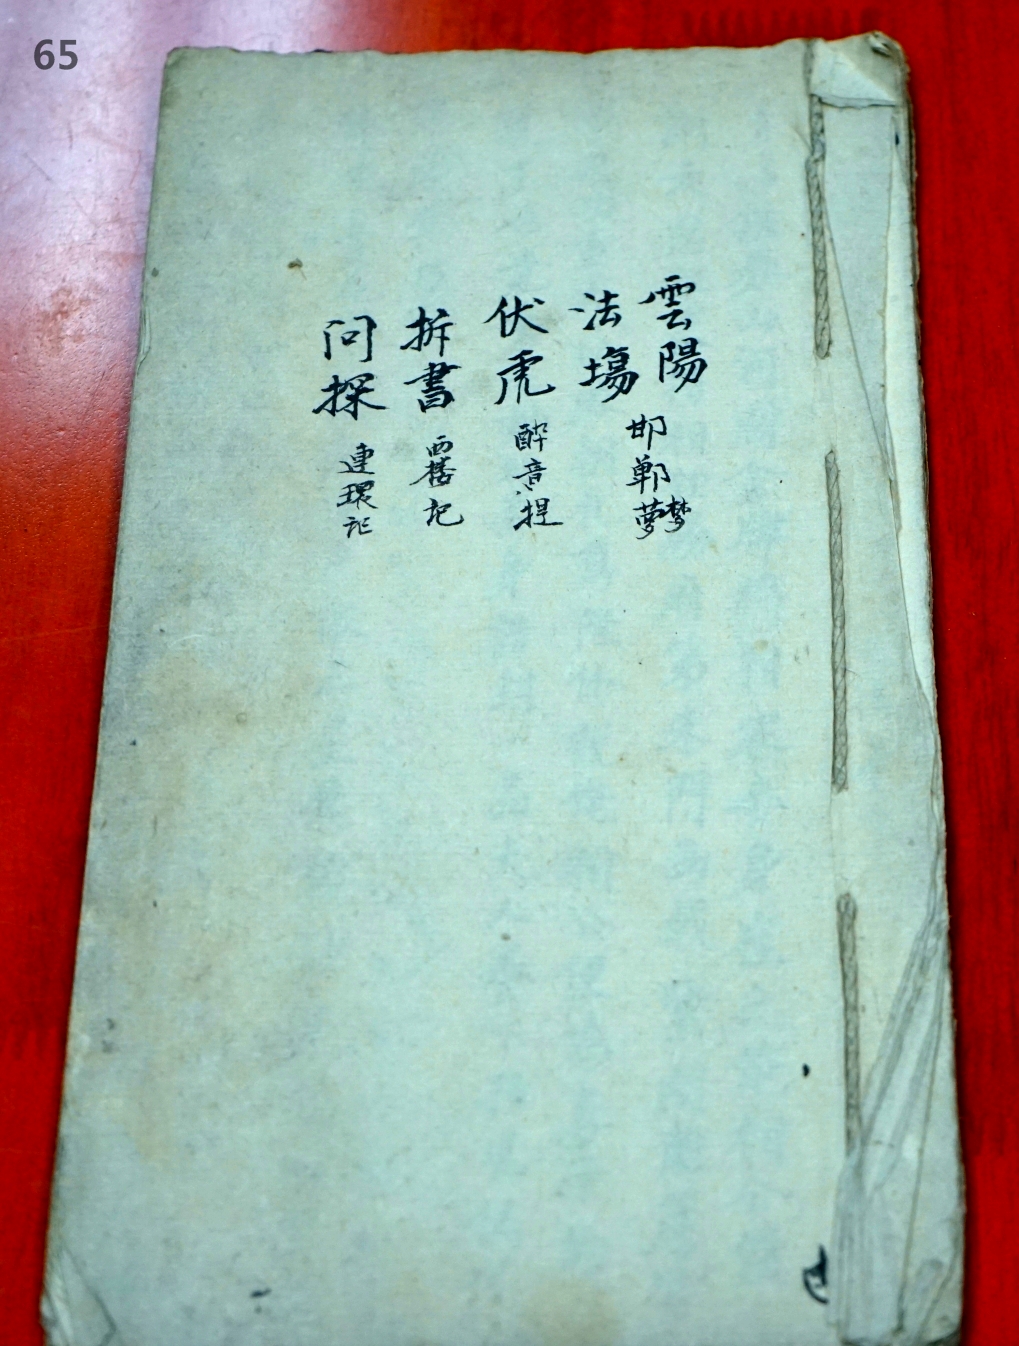 65
雲陽
法場
邯郸夢梦
伏虎
醉音提
拆書
西楼記
问探
連環記